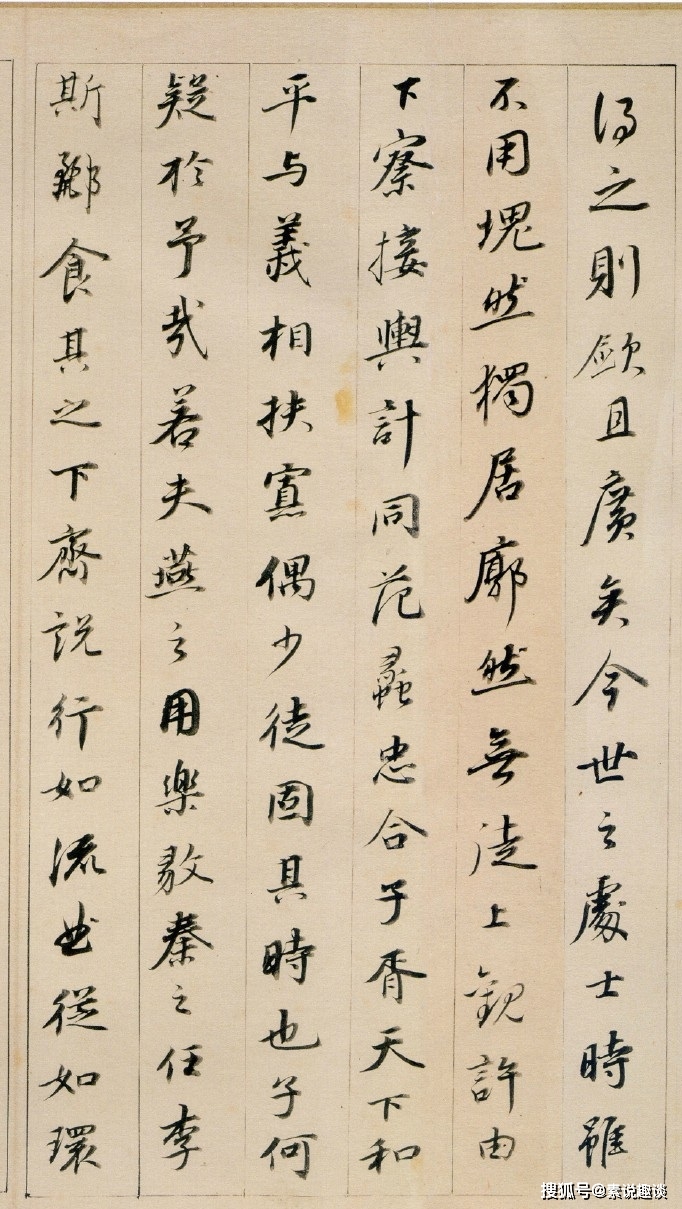 得之則且廣矣今世之處士時雖
不用塊然獨居廓然無徒上觀許由
下察接輿計同范蠡忠合子胥天下和
平与義相扶寡偶少徒固其時也子何
疑於予哉若夫燕之用樂毅秦之任李
斯酈食其之下齊說行如流曲從如環
搜狐号@素说趣谈